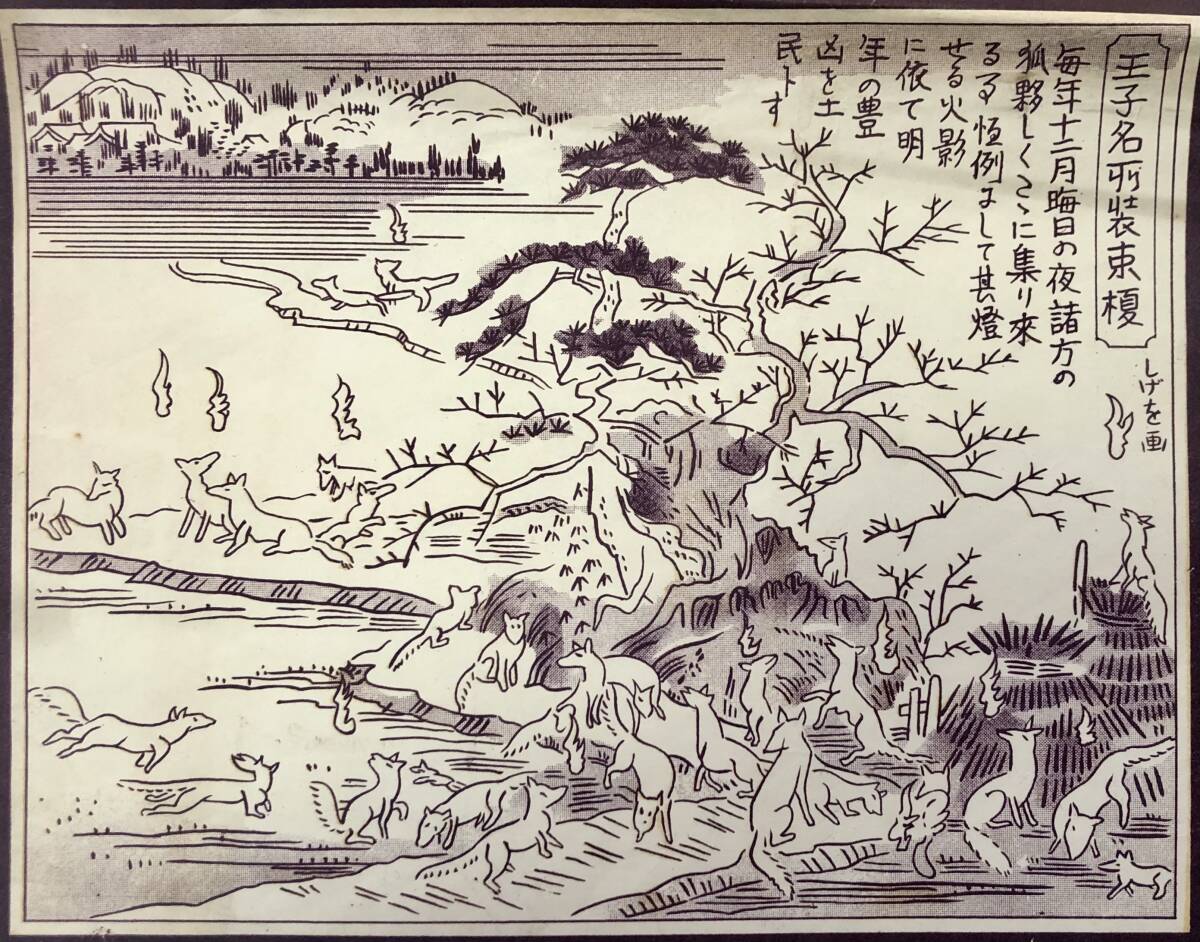 王子名所装束榎
しげを画
毎年十二月晦日の夜諸方の
狐夥しくこゝに集り來
るる恒例にして其燈
せる火影
に依て明
年の豊
凶を土
民トす